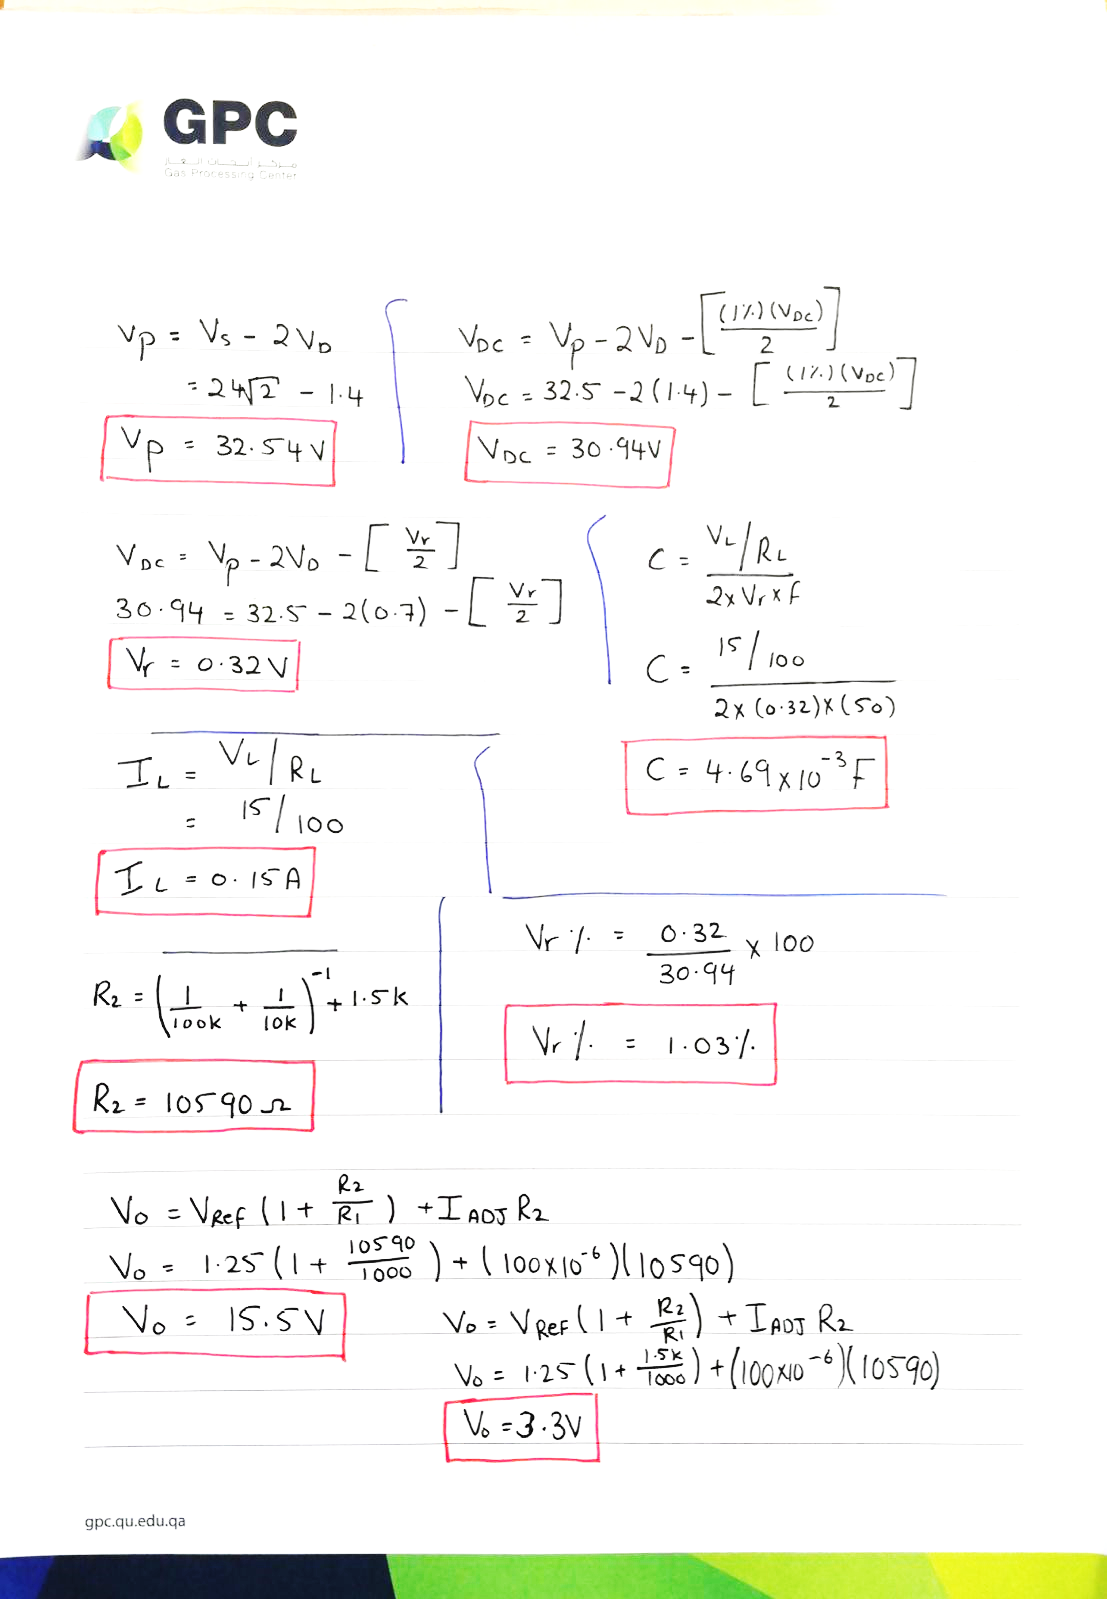 GPC
مركز أبحاث الغاز
Gas Processing Center
Vp = Vs - 2VD
= 24√2 - 1.4
Vp = 32.54V
VDC = Vp - 2VD - [(1%)(VDC)/2]
VDC = 32.5 - 2(1.4) - [(1%)(VDC)/2]
VDC = 30.94V
VDC = Vp - 2VD - [Vr/2]
30.94 = 32.5 - 2(0.7) - [Vr/2]
Vr = 0.32V
C = (VL/RL)/(2 x Vr x F)
C = (15/100)/(2 x (0.32) x (50))
C = 4.69 x 10⁻³ F
IL = VL/RL
= 15/100
IL = 0.15A
Vr % = 0.32/30.94 x 100
Vr % = 1.03%
R2 = (1/100k + 1/10k)⁻¹ + 1.5k
R2 = 10590 Ω
Vo = VRef (1 + R2/R1) + IADJ R2
Vo = 1.25 (1 + 10590/1000) + (100x10⁻⁶)(10590)
Vo = 15.5V
Vo = VREF (1 + R2/R1) + IADJ R2
Vo = 1.25 (1 + 1.5k/1000) + (100x10⁻⁶)(10590)
Vo = 3.3V
gpc.qu.edu.qa